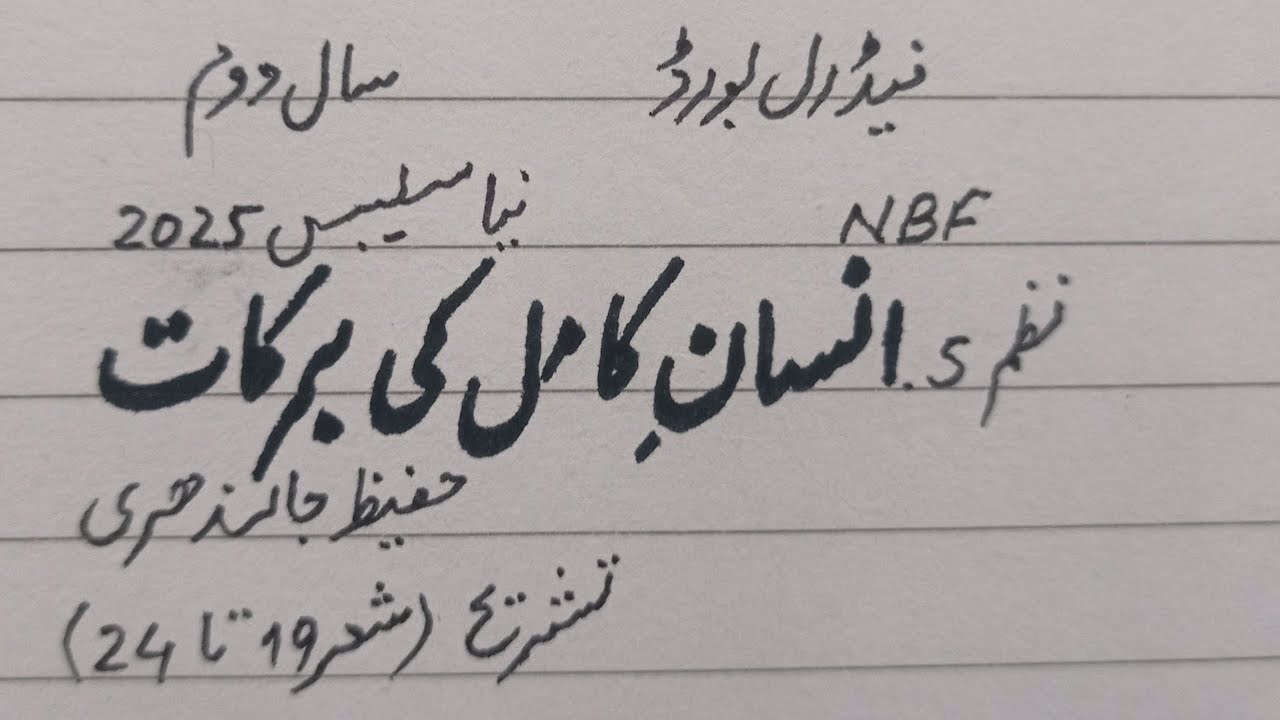 فیڈرل بورڈ سال دوم
NBF نیا سلیبس 2025
نظم 5. انسانِ کامل کی برکات
حفیظ جالندھری
تشریح (شعر 19 تا 24)